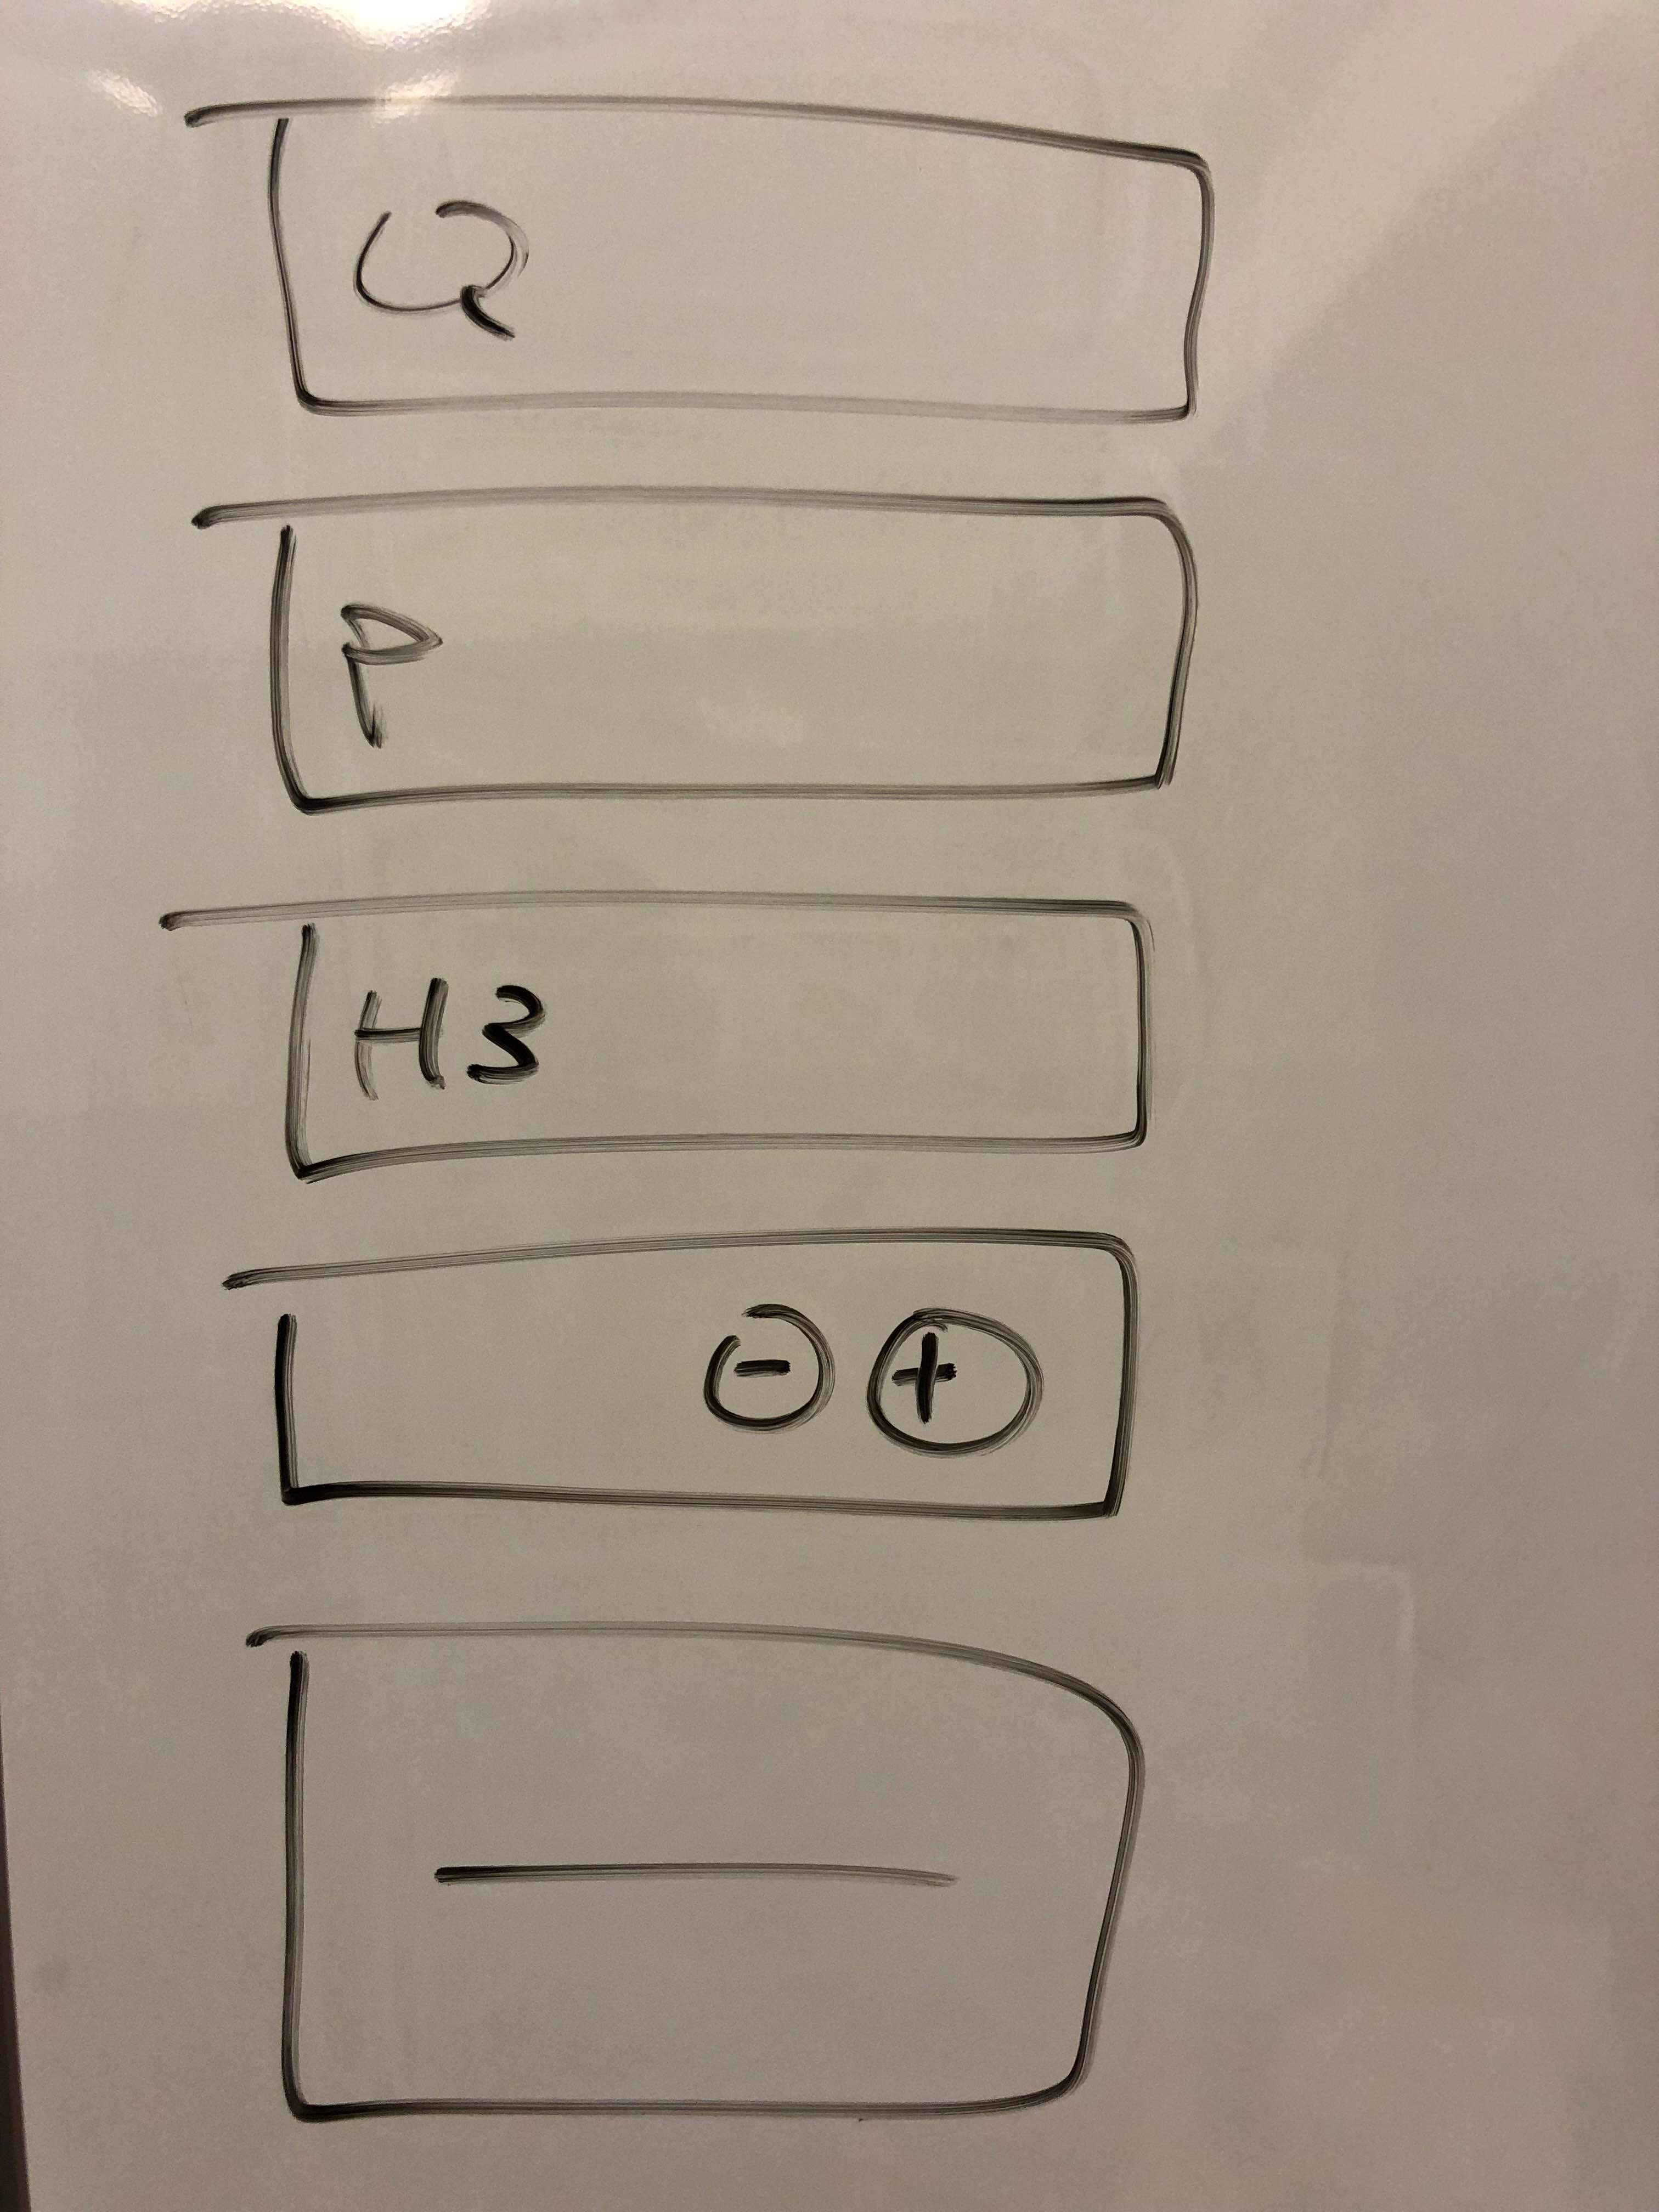 Q
P
H3
- +